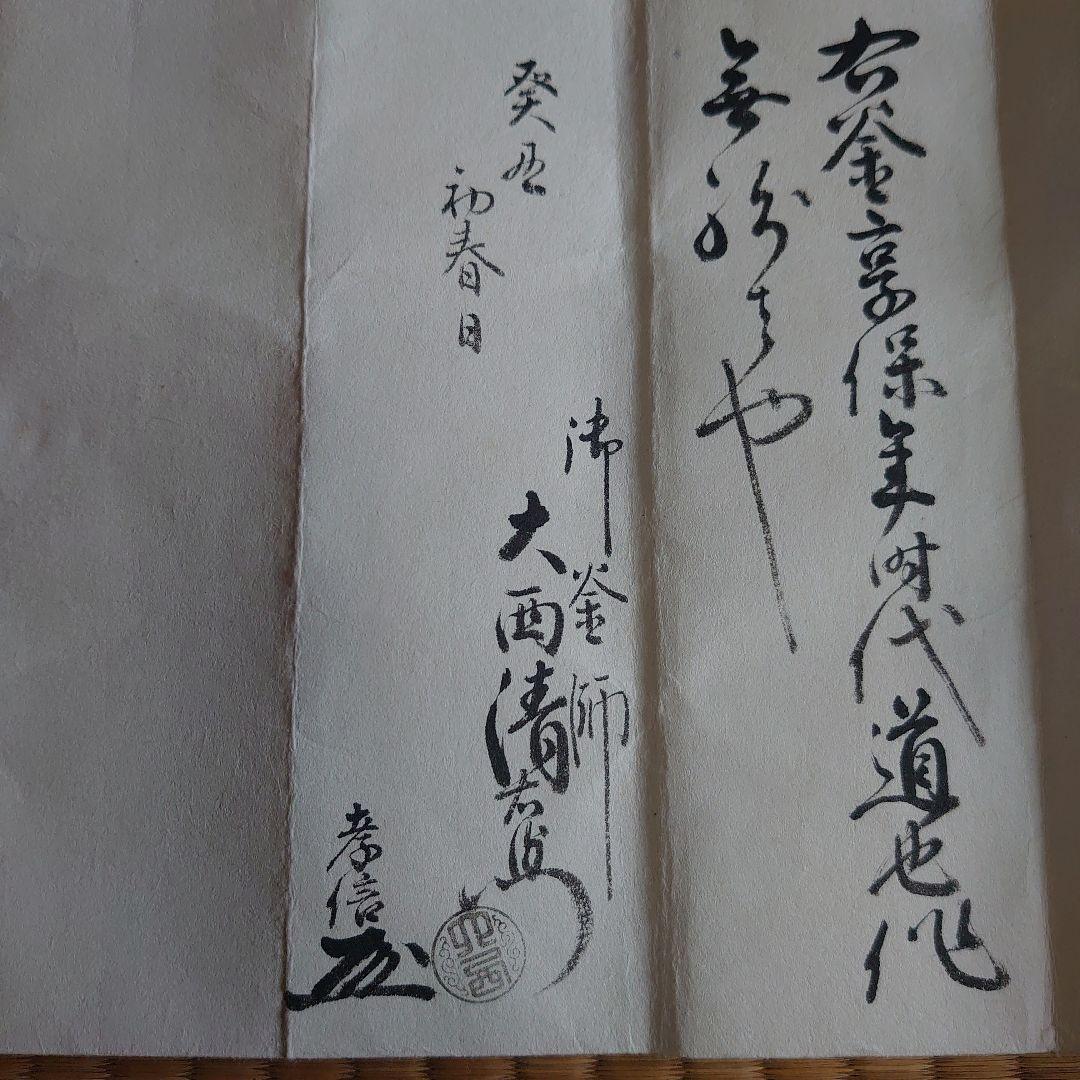 右釜享保年時代道也作
無紛者也
癸丑
初春日
御釜師
大西清右衛門
孝信
大西